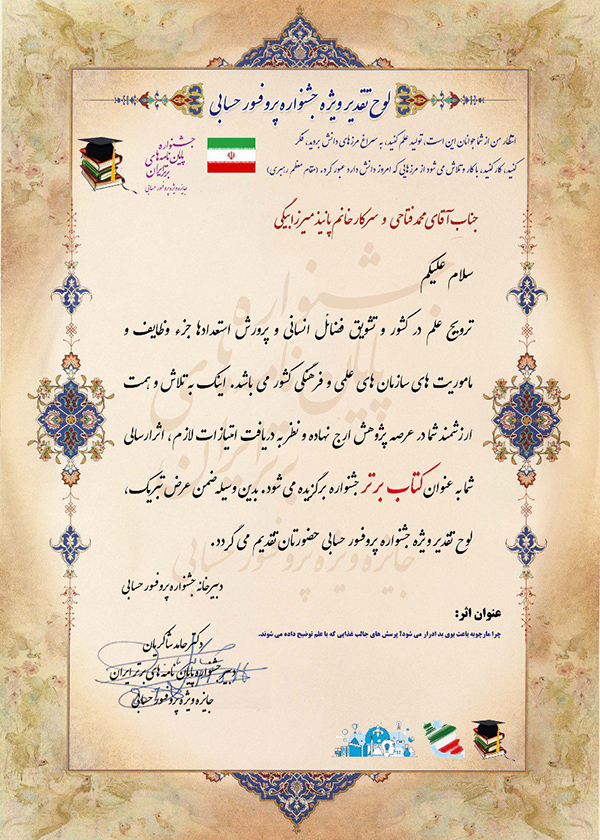 لوح تقدیر ویژه جشنواره پروفسور حسابی
جشنواره
پایان نامه های
برتر ایران
جایزه ویژه پروفسور حسابی
انتظار من از شما جوانان این است، تولید علم کنید، به سراغ مرزهای دانش بروید، فکر
کنید، کار کنید، با کار و تلاش می شود از مرزهایی که امروز دانش دارد عبور کرد. (مقام معظم رهبری)
جناب آقای محمد فتاحی و سرکار خانم پانیذ میرزابیگی
سلام علیکم
ترویج علم در کشور و تشویق فضائل انسانی و پرورش استعدادها جزء وظایف و
ماموریت های سازمان های علمی و فرهنگی کشور می باشد. اینک به تلاش و همت
ارزشمند شما در عرصه پژوهش ارج نهاده و نظر به دریافت امتیازات لازم، اثر ارسالی
شما به عنوان کتاب برتر جشنواره برگزیده می شود. بدین وسیله ضمن عرض تبریک،
لوح تقدیر ویژه جشنواره پروفسور حسابی حضورتان تقدیم می گردد.
جشنواره
پایان نامه های
برتر ایران
جایزه ویژه پروفسور حسابی
دبیرخانه جشنواره پروفسور حسابی
عنوان اثر:
چرا مارچوبه باعث بوی بد ادرار می شود؟ پرسش های جالب غذایی که با علم توضیح داده می شوند.
دکتر حامد شاکریان
دبیر جشنواره پایان نامه های برتر ایران
جایزه ویژه پروفسور حسابی